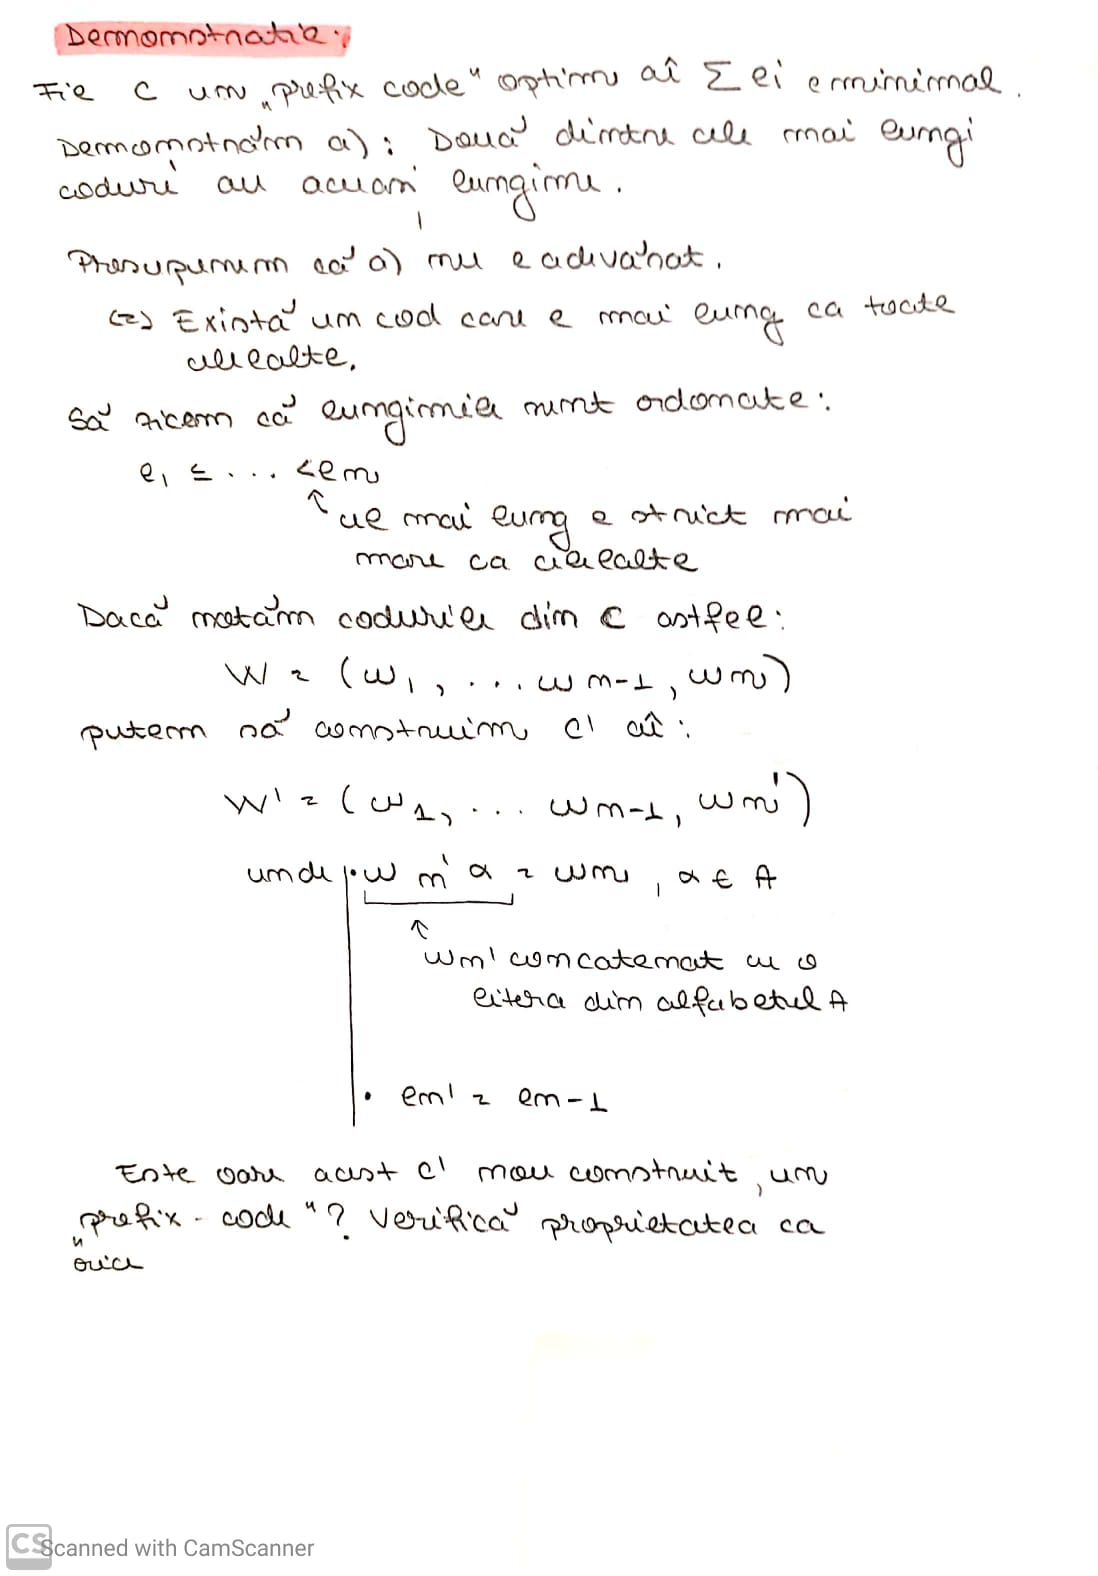 Demonstratie:
Fie C un „prefix code" optim aî Σ li e minimal.
Demonstrăm a): Două dintre cele mai lungi
coduri au aceeași lungime.
Presupunem că a) nu e adevărat.
(=) Există un cod care e mai lung ca toate
celelalte.
Să zicem că lungimile sunt ordonate:
l₁ ≤ ... < ln
↑ cel mai lung e strict mai
mare ca celelalte
Dacă notăm codurile din C astfel:
W = (w₁, ... wn-1, wn)
putem să construim C' aî:
W' = (w1, ... wn-1, wn')
unde • wn' a = wn, a ∈ A
↑
wn' concatenat cu o
litera din alfabetul A
• ln' = ln-1
Este oare acest C' nou construit, un
„prefix-code"? Verifică proprietatea ca
orice
CS Scanned with CamScanner